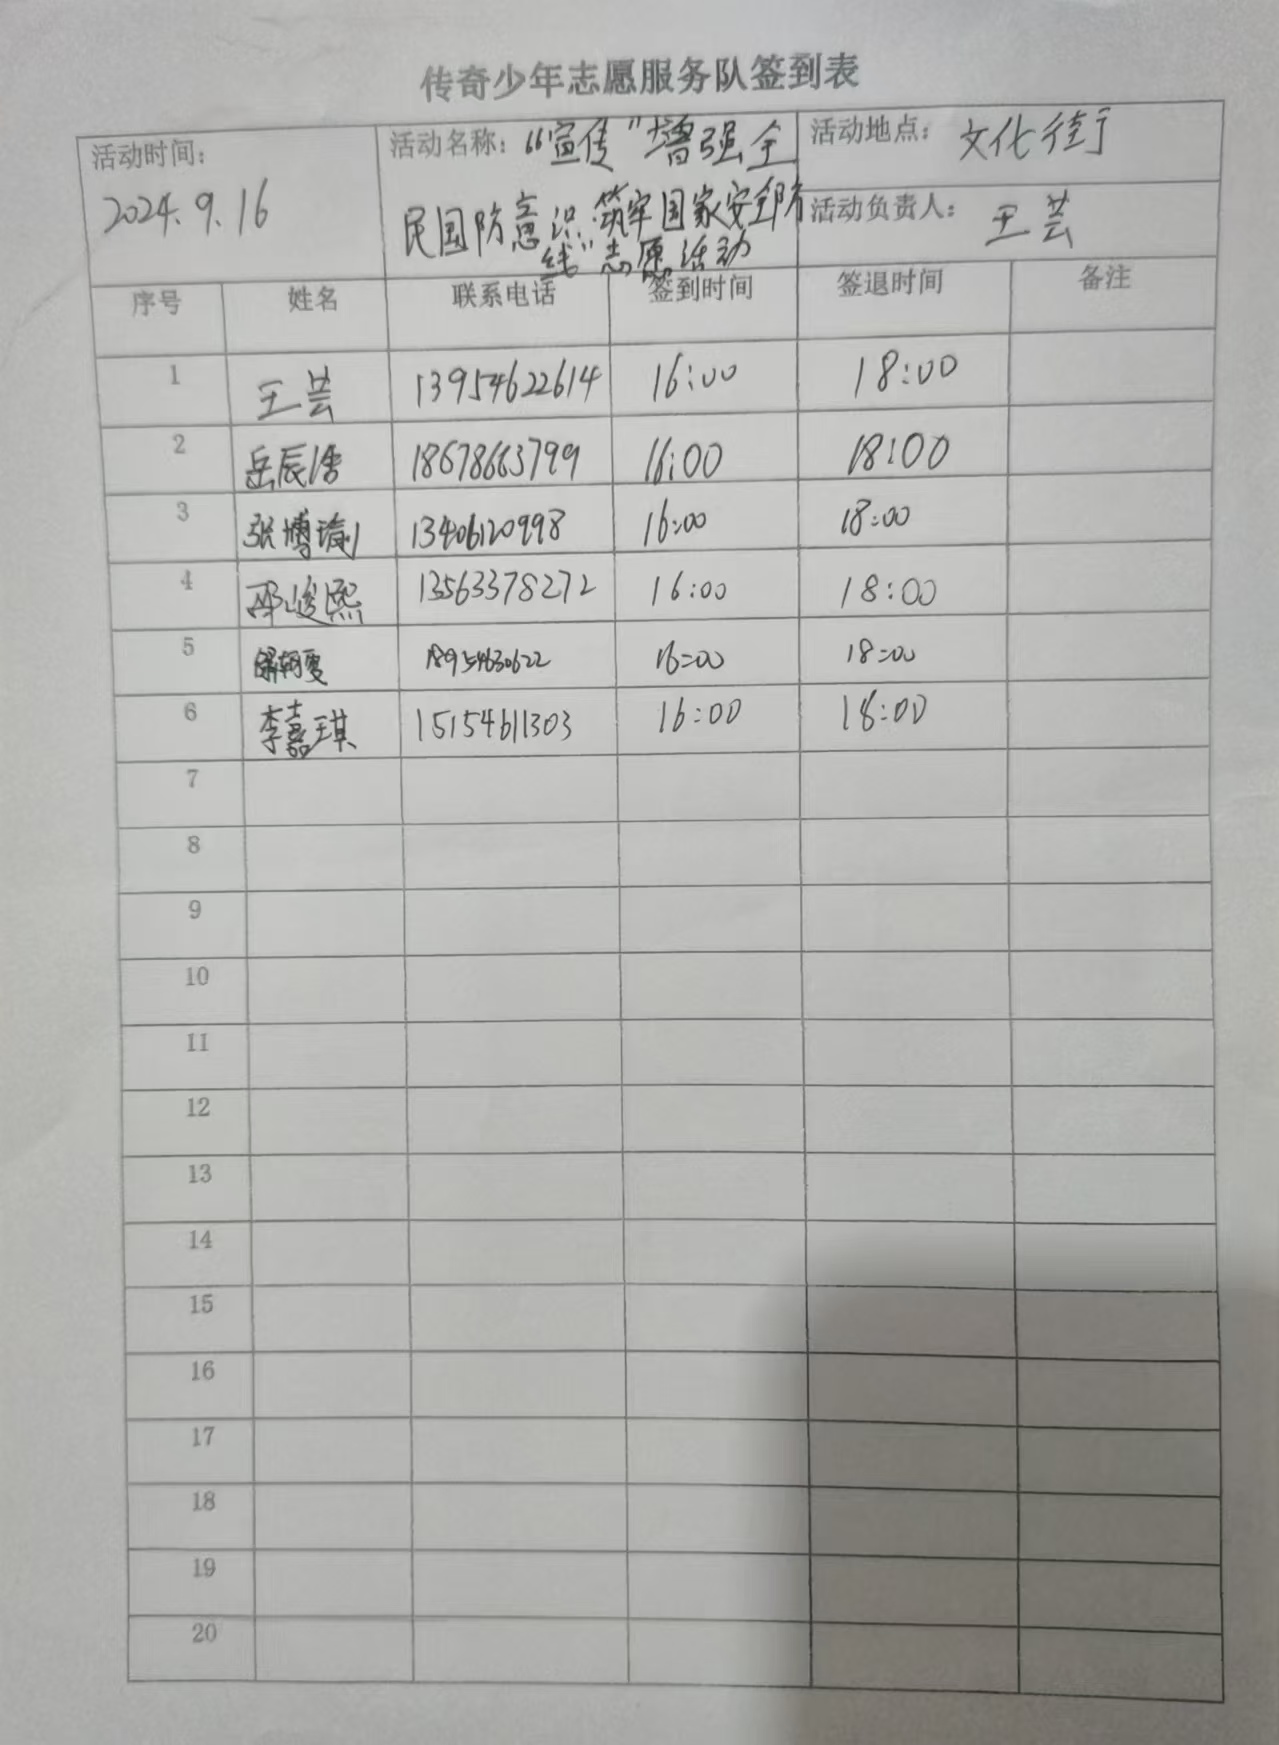 传奇少年志愿服务队签到表
活动时间：
2024.9.16
活动名称：“宣传“增强全
民国防意识 筑牢国家安全防
线”志愿活动
活动地点： 文化街
活动负责人： 王芸
序号 姓名 联系电话 签到时间 签退时间 备注
1 王芸 13954622614 16:00 18:00
2 岳辰浩 18678663799 16:00 18:00
3 张博瀚 13406120998 16:00 18:00
4 邵峻熙 13563378272 16:00 18:00
5 18954630622 16:00 18:00
6 李嘉琪 15154611303 16:00 18:00
7
8
9
10
11
12
13
14
15
16
17
18
19
20